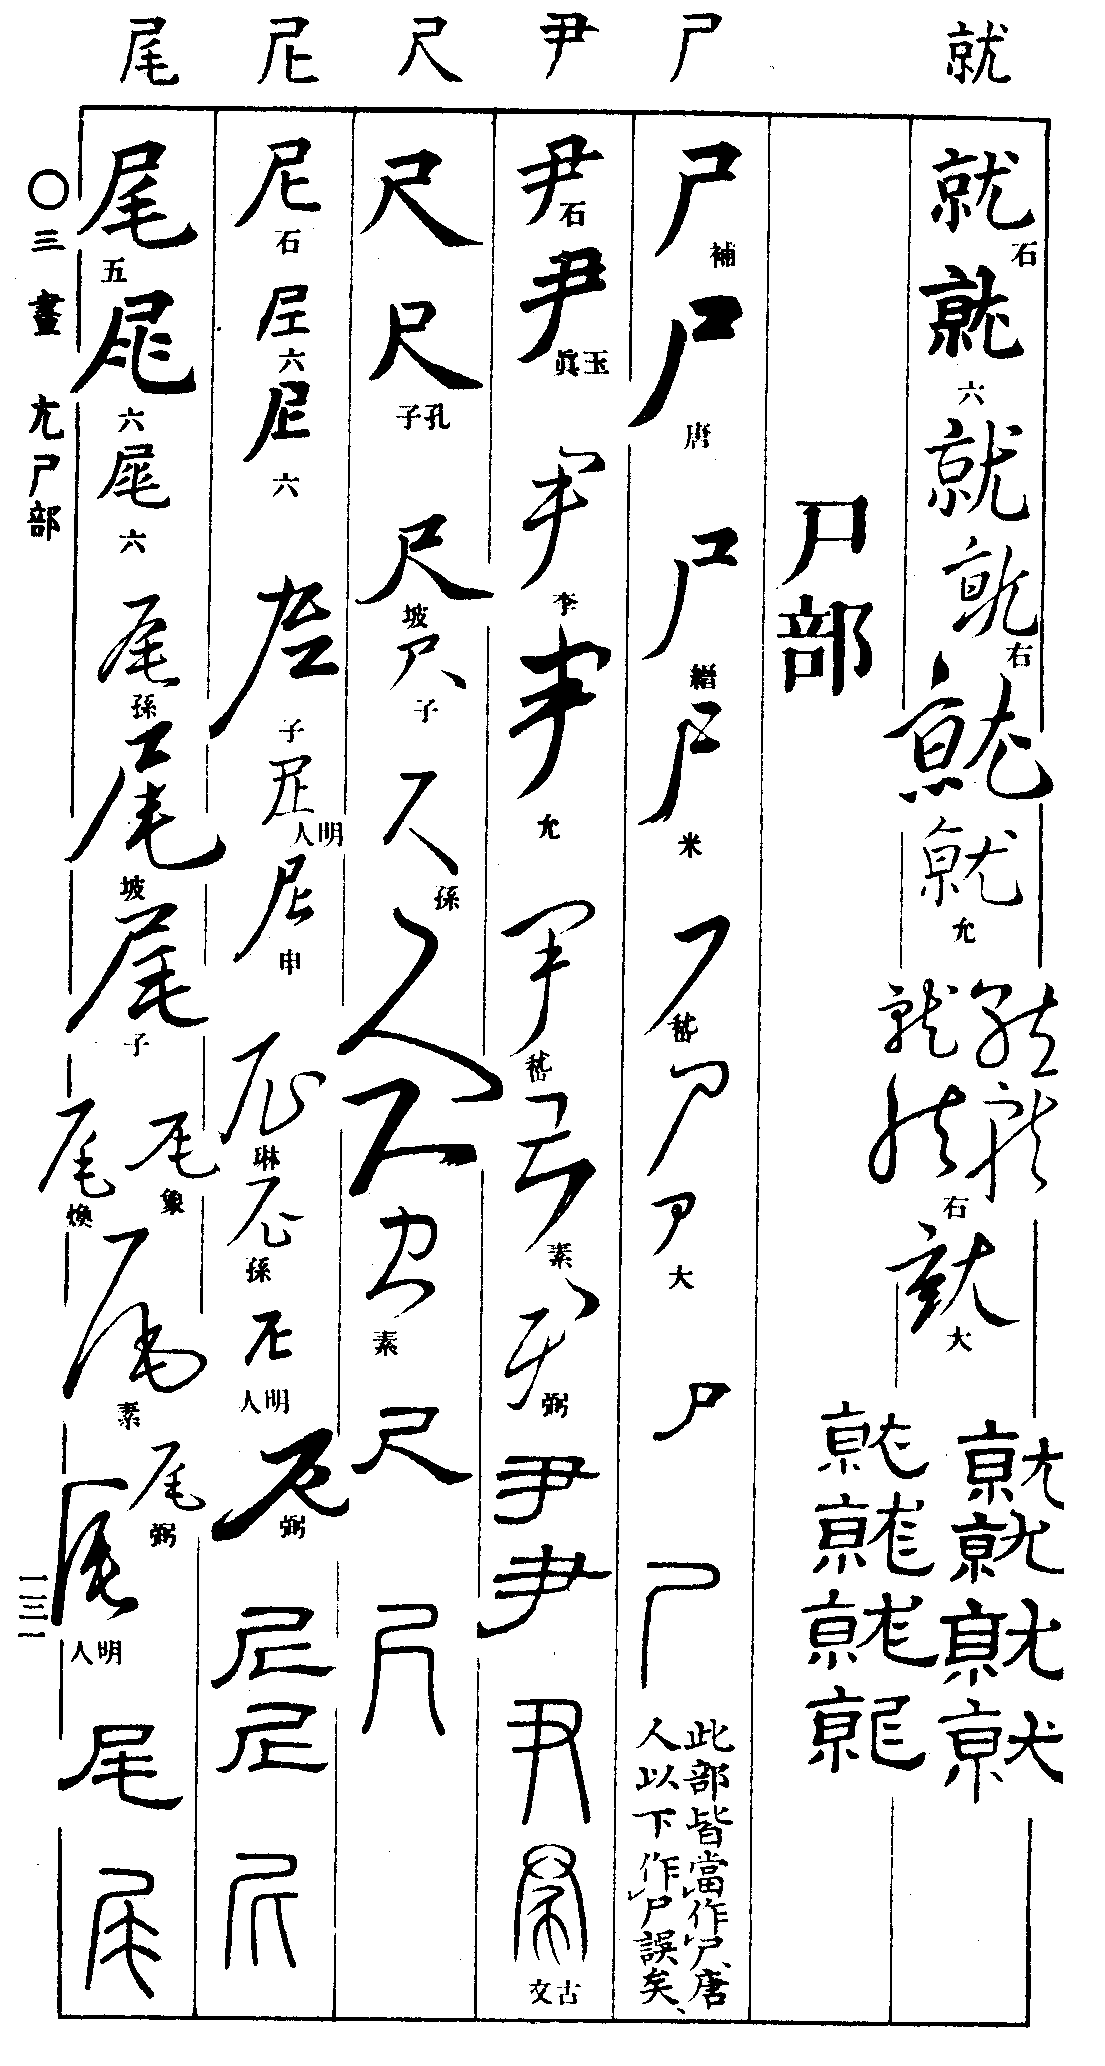 就
就石
就六
就
就右
就
就允
就就
就就右
就大
就就
就就
就就
就就
尸部
尸
尸補
尸唐
尸
繒
尸米
尸嵇
尸
尸大
尸
尸
此部皆當作尸、唐
人以下作尸誤矣、
尹
尹石
尹玉眞
尹李
尹允
尹嵇
尹素
尹弼
尹
尹
尹
尹古文
尺
尺
尺孔子
尺坡
尺子
尺孫
尺
尺
尺素
尺
尺
尼
尼石
尼六
尼六
尼子
尼明人
尼申
尼琳
尼孫
尼明人
尼弼
尼
尼
尼
尾
尾五
尾六
尾六
尾孫
尾坡
尾子
尾象
尾煥
尾素
尾弼
尾明人
尾
尾
〇三畫 尢尸部
一三一